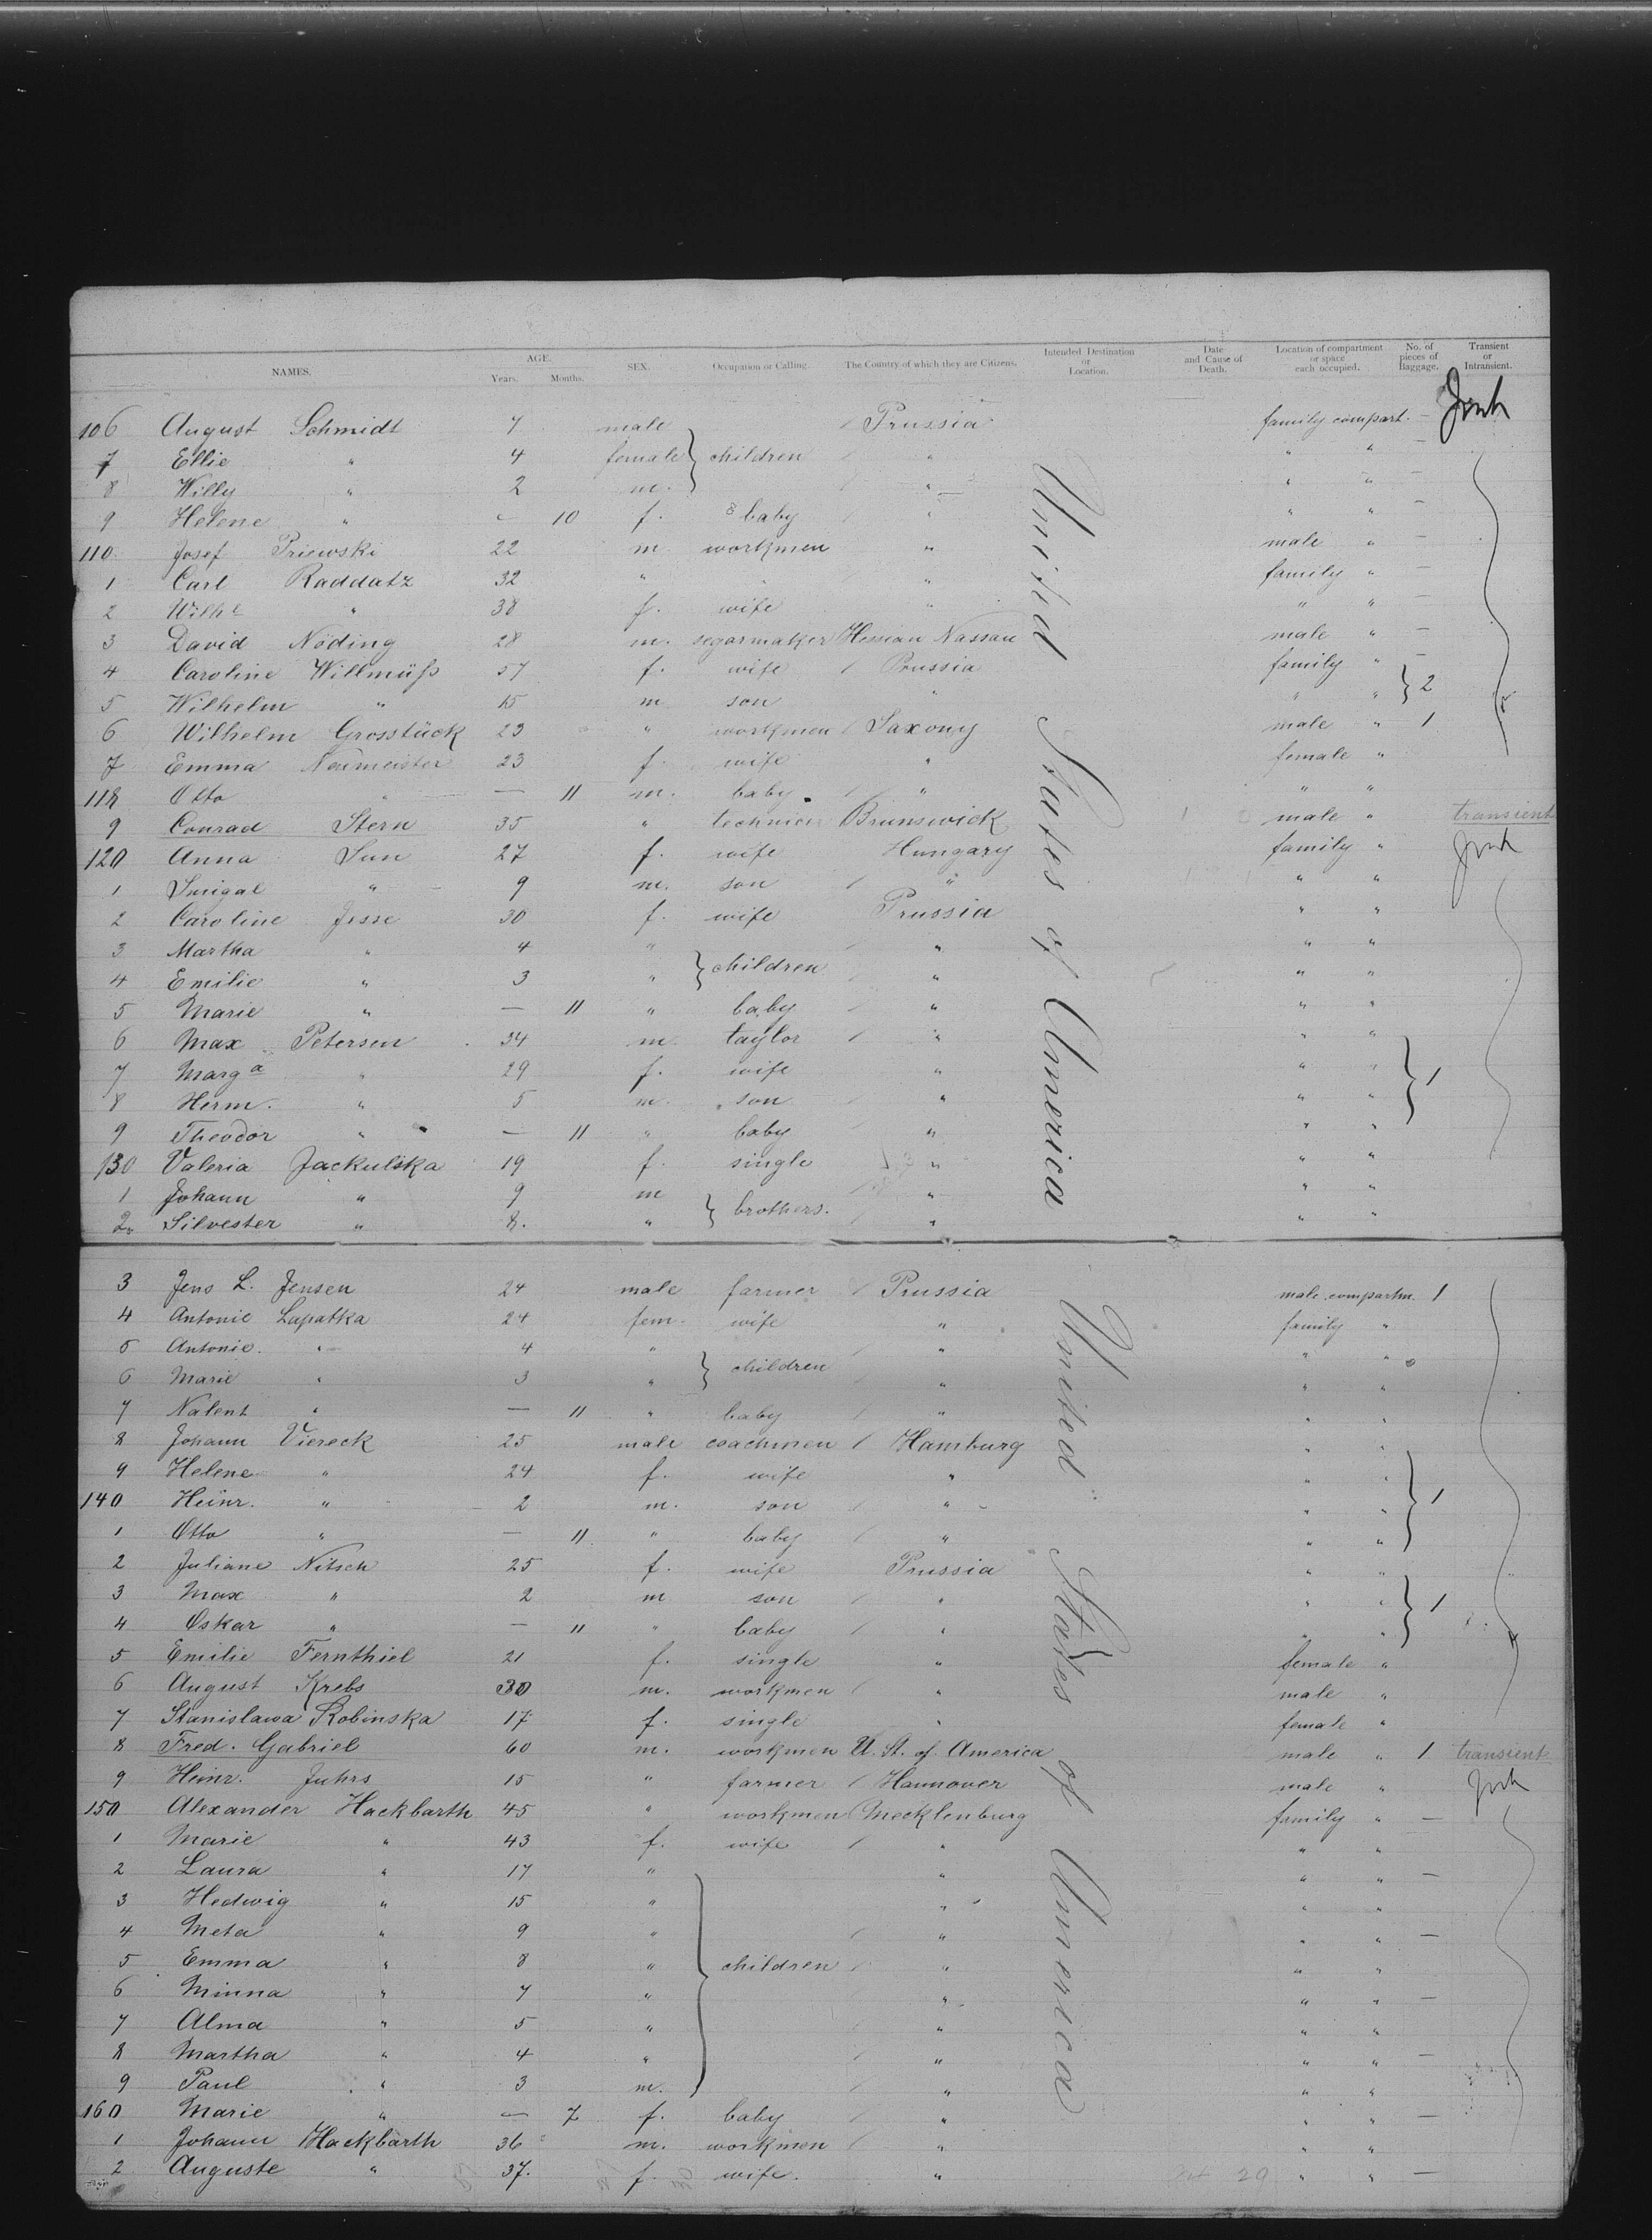 NAMES. AGE. Years. Months. SEX. Occupation or Calling. The Country of which they are Citizens. Intended Destination or Location. Date and Cause of Death. Location of compartment or space each occupied. No. of pieces of Baggage. Transient or Intransient.
106 August Schmidt 7 male Prussia family compart. —
7 Ellie " 4 female } children " " " —
8 Willy " 2 m. " " " —
9 Helene " — 10 f. baby " " " —
110 Josef Priewski 22 m. workmen " male " —
1 Carl Raddatz 32 " " " family " —
2 Wilhe " 38 f. wife " " " —
3 David Nöding 28 m. segarmaker Hessian Nassau male " —
4 Caroline Willmüß 57 f. wife Prussia family " } 2
5 Wilhelm " 15 m son " " "
6 Wilhelm Grosstück 23 " workmen Saxony male " 1
7 Emma Neumeister 23 f. wife " female "
118 Otto " — 11 m. baby " " "
9 Conrad Stern 35 " technicer Brunswick male " transient
120 Anna Sun 27 f. wife Hungary family "
1 Smigal " 9 m. son " " "
2 Caroline Jesse 30 f. wife Prussia " "
3 Martha " 4 " } children " " "
4 Emilie " 3 " " " "
5 Marie " — 11 " baby " " "
6 Max Petersen 34 m. taylor " " " } 1
7 Marga " 29 f. wife " " "
8 Herm. " 5 m. son " " "
9 Theodor " — 11 " baby " " "
130 Valeria Jackulska 19 f. single " " "
1 Johann " 9 m } brothers. " " "
2 Silvester " 8. " " " "
United States of America
3 Jens L. Jensen 24 male farmer Prussia male compartm. 1
4 Antonie Lapatka 24 fem. wife " family "
5 Antonie. " 4 " } children " " "
6 Marie " 3 " " " "
7 Nalent " — 11 " baby " " "
8 Johann Viereck 25 male coachmen Hamburg " " } 1
9 Helene " 24 f. wife " " "
140 Heinr. " 2 m. son " " "
1 Otto " — 11 " baby " " "
2 Juliane Nitsch 25 f. wife Prussia " " } 1
3 Max " 2 m son " " "
4 Oskar " — 11 " baby " " "
5 Emilie Fernthiel 21 f. single " female "
6 August Krebs 30 m. workmen " male "
7 Stanislawa Robinska 17 f. single " female "
8 Fred. Gabriel 60 m. workmen U. St. of America male " 1 transient
9 Heinr. Juhrs 15 " farmer Hannover male "
150 Alexander Hackbarth 45 " workmen Mecklenburg family " —
1 Marie " 43 f. wife " " "
2 Laura " 17 " } children " " " —
3 Hedwig " 15 " " " "
4 Meta " 9 " " " " —
5 Emma " 8 " " " "
6 Minna " 7 " " " " —
7 Alma " 5 " " " "
8 Martha " 4 " " " " —
9 Paul " 3 m. " " "
160 Marie " — 7 f. baby " " " —
1 Johann Hackbarth 36 m. workmen " " "
2 Auguste " 37. f. wife. " " " —
United States of America